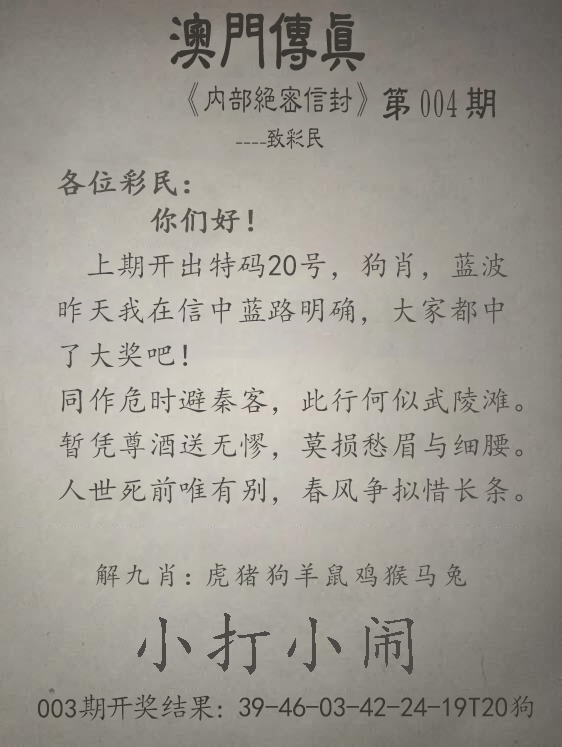 澳門傳眞
《内部絕密信封》第004期
----致彩民
各位彩民：
你们好！
上期开出特码20号，狗肖，蓝波
昨天我在信中蓝路明确，大家都中
了大奖吧！
同作危时避秦客，此行何似武陵滩。
暂凭尊酒送无憀，莫损愁眉与细腰。
人世死前唯有别，春风争拟惜长条。
解九肖：虎猪狗羊鼠鸡猴马兔
小打小闹
003期开奖结果：39-46-03-42-24-19T20狗